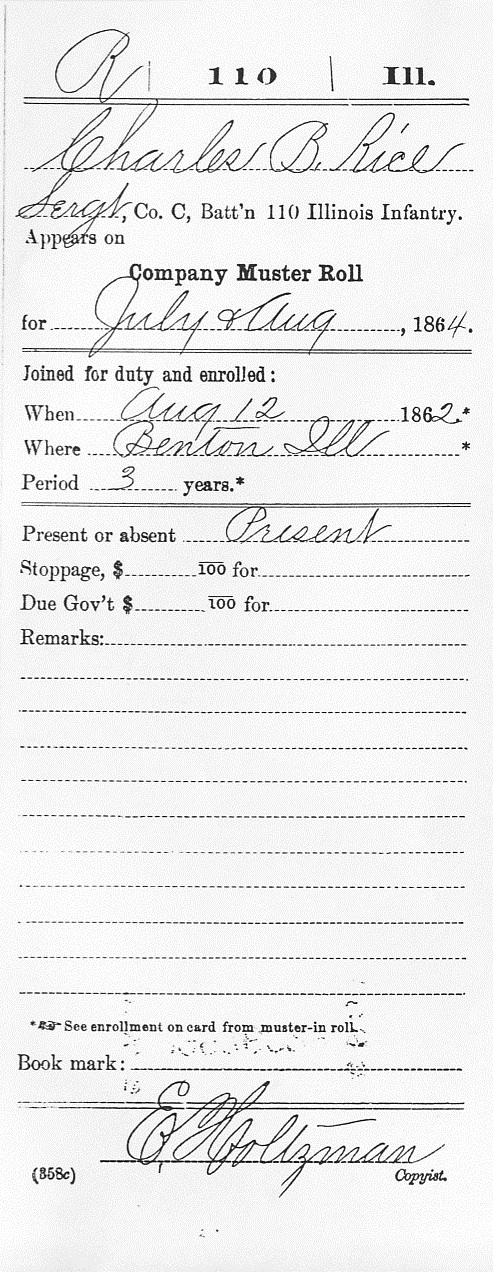 R | 110 | Ill.
Charles B. Rice
Sergt, Co. C, Batt'n 110 Illinois Infantry.
Appears on
Company Muster Roll
for July & Aug, 1864.
Joined for duty and enrolled:
When Aug 12 1862.*
Where Benton Ill *
Period 3 years.*
Present or absent Present
Stoppage, $ 100 for
Due Gov't $ 100 for
Remarks:
*☞ See enrollment on card from muster-in roll.
Book mark:
E Holtzman
(358c) Copyist.